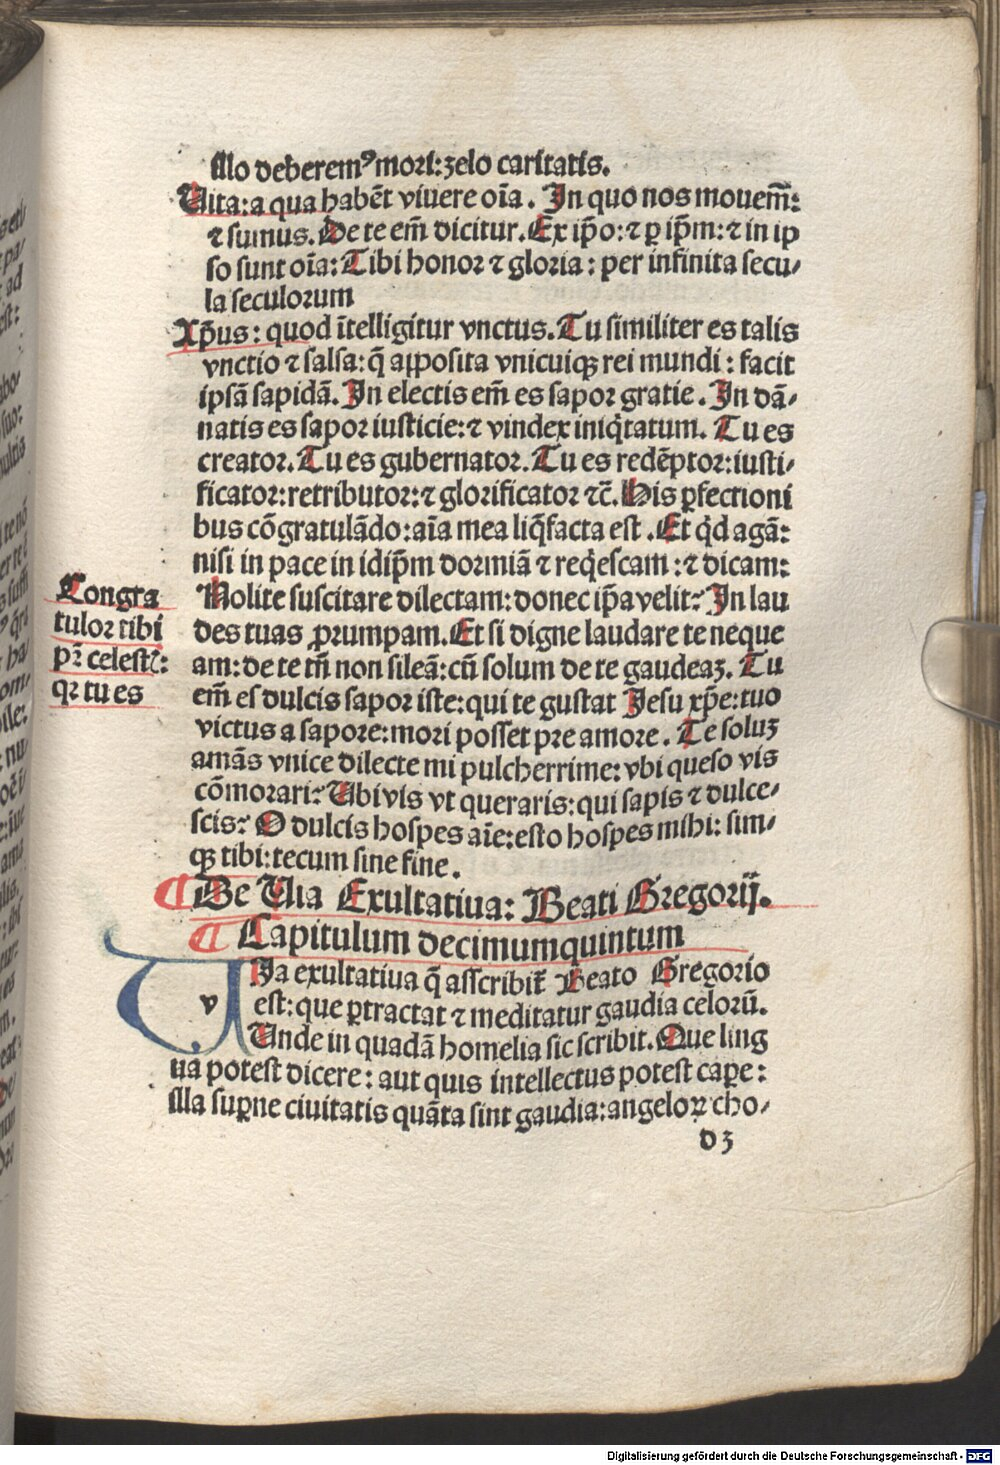 illo deberemꝰ mori: zelo caritatis.
Uita: a qua habēt viuere oīa. In quo nos mouem̄:
⁊ sumus. De te em̄ dicitur. Ex ip̄o: ⁊ ꝑ ip̄m: ⁊ in ip
so sunt oīa: Tibi honor ⁊ gloria: per infinita secu/
la seculorum
Xp̄us: quod ītelligitur vnctus. Tu similiter es talis
vnctio ⁊ salsa: q̄ apposita vnicuiqꝫ rei mundi: facit
ipsā sapidā. In electis em̄ es sapor gratie. In dā/
natis es sapor iusticie: ⁊ vindex iniq̄tatum. Tu es
creator. Tu es gubernator. Tu es redēptor: iusti/
ficator: retributor: ⁊ glorificator ⁊c̄. His ꝑfectioni
bus cōgratulādo: aīa mea liq̄facta est. Et qd̄ agā:
nisi in pace in idip̄m dormiā ⁊ req̄escam: ⁊ dicam:
Nolite suscitare dilectam: donec ip̄a velit? In lau
des tuas ꝓrumpam. Et si digne laudare te neque
am: de te tn̄ non sileā: cū solum de te gaudeaꝫ. Tu
em̄ es dulcis sapor iste: qui te gustat Jesu xp̄e: tuo
victus a sapore: mori posset pre amore. Te soluꝫ
amās vnice dilecte mi pulcherrime: vbi queso vis
cōmorari? Ubi vis vt queraris: qui sapis ⁊ dulce/
scis? O dulcis hospes aīe: esto hospes mihi: sim/
qꝫ tibi: tecum sine fine.
Congra
tulor tibi
pr̄ celest̄:
qꝛ tu es
¶ De Uia Exultatiua: Beati Gregorij.
¶ Capitulum decimumquintum
v
Ia exultatiua q̄ asscribit̄ Beato Gregorio
est: que ꝑtractat ⁊ meditatur gaudia celorū.
Unde in quadā homelia sic scribit. Que ling
ua potest dicere: aut quis intellectus potest capere:
illa suꝑne ciuitatis quāta sint gaudia: angeloꝝ cho/
d 3
Digitalisierung gefördert durch die Deutsche Forschungsgemeinschaft - DFG